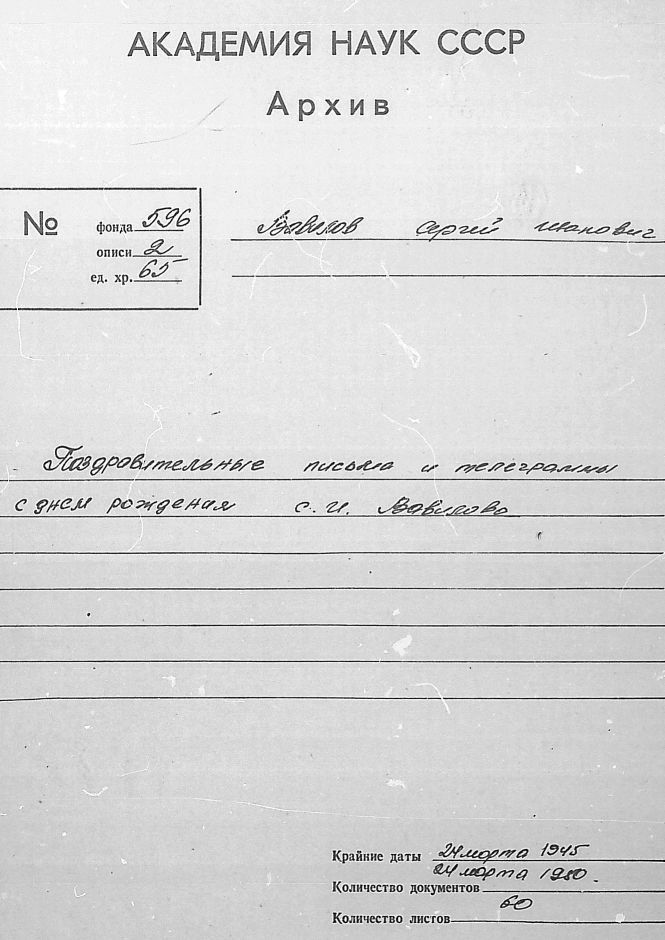 АКАДЕМИЯ НАУК СССР
Архив
№ фонда 596
описи 2
ед. хр. 65
Вавилов Сергей Иванович
Поздравительные письма и телеграммы
с днем рождения С. И. Вавилова
Крайние даты 24 марта 1945
24 марта 1950.
Количество документов
60
Количество листов